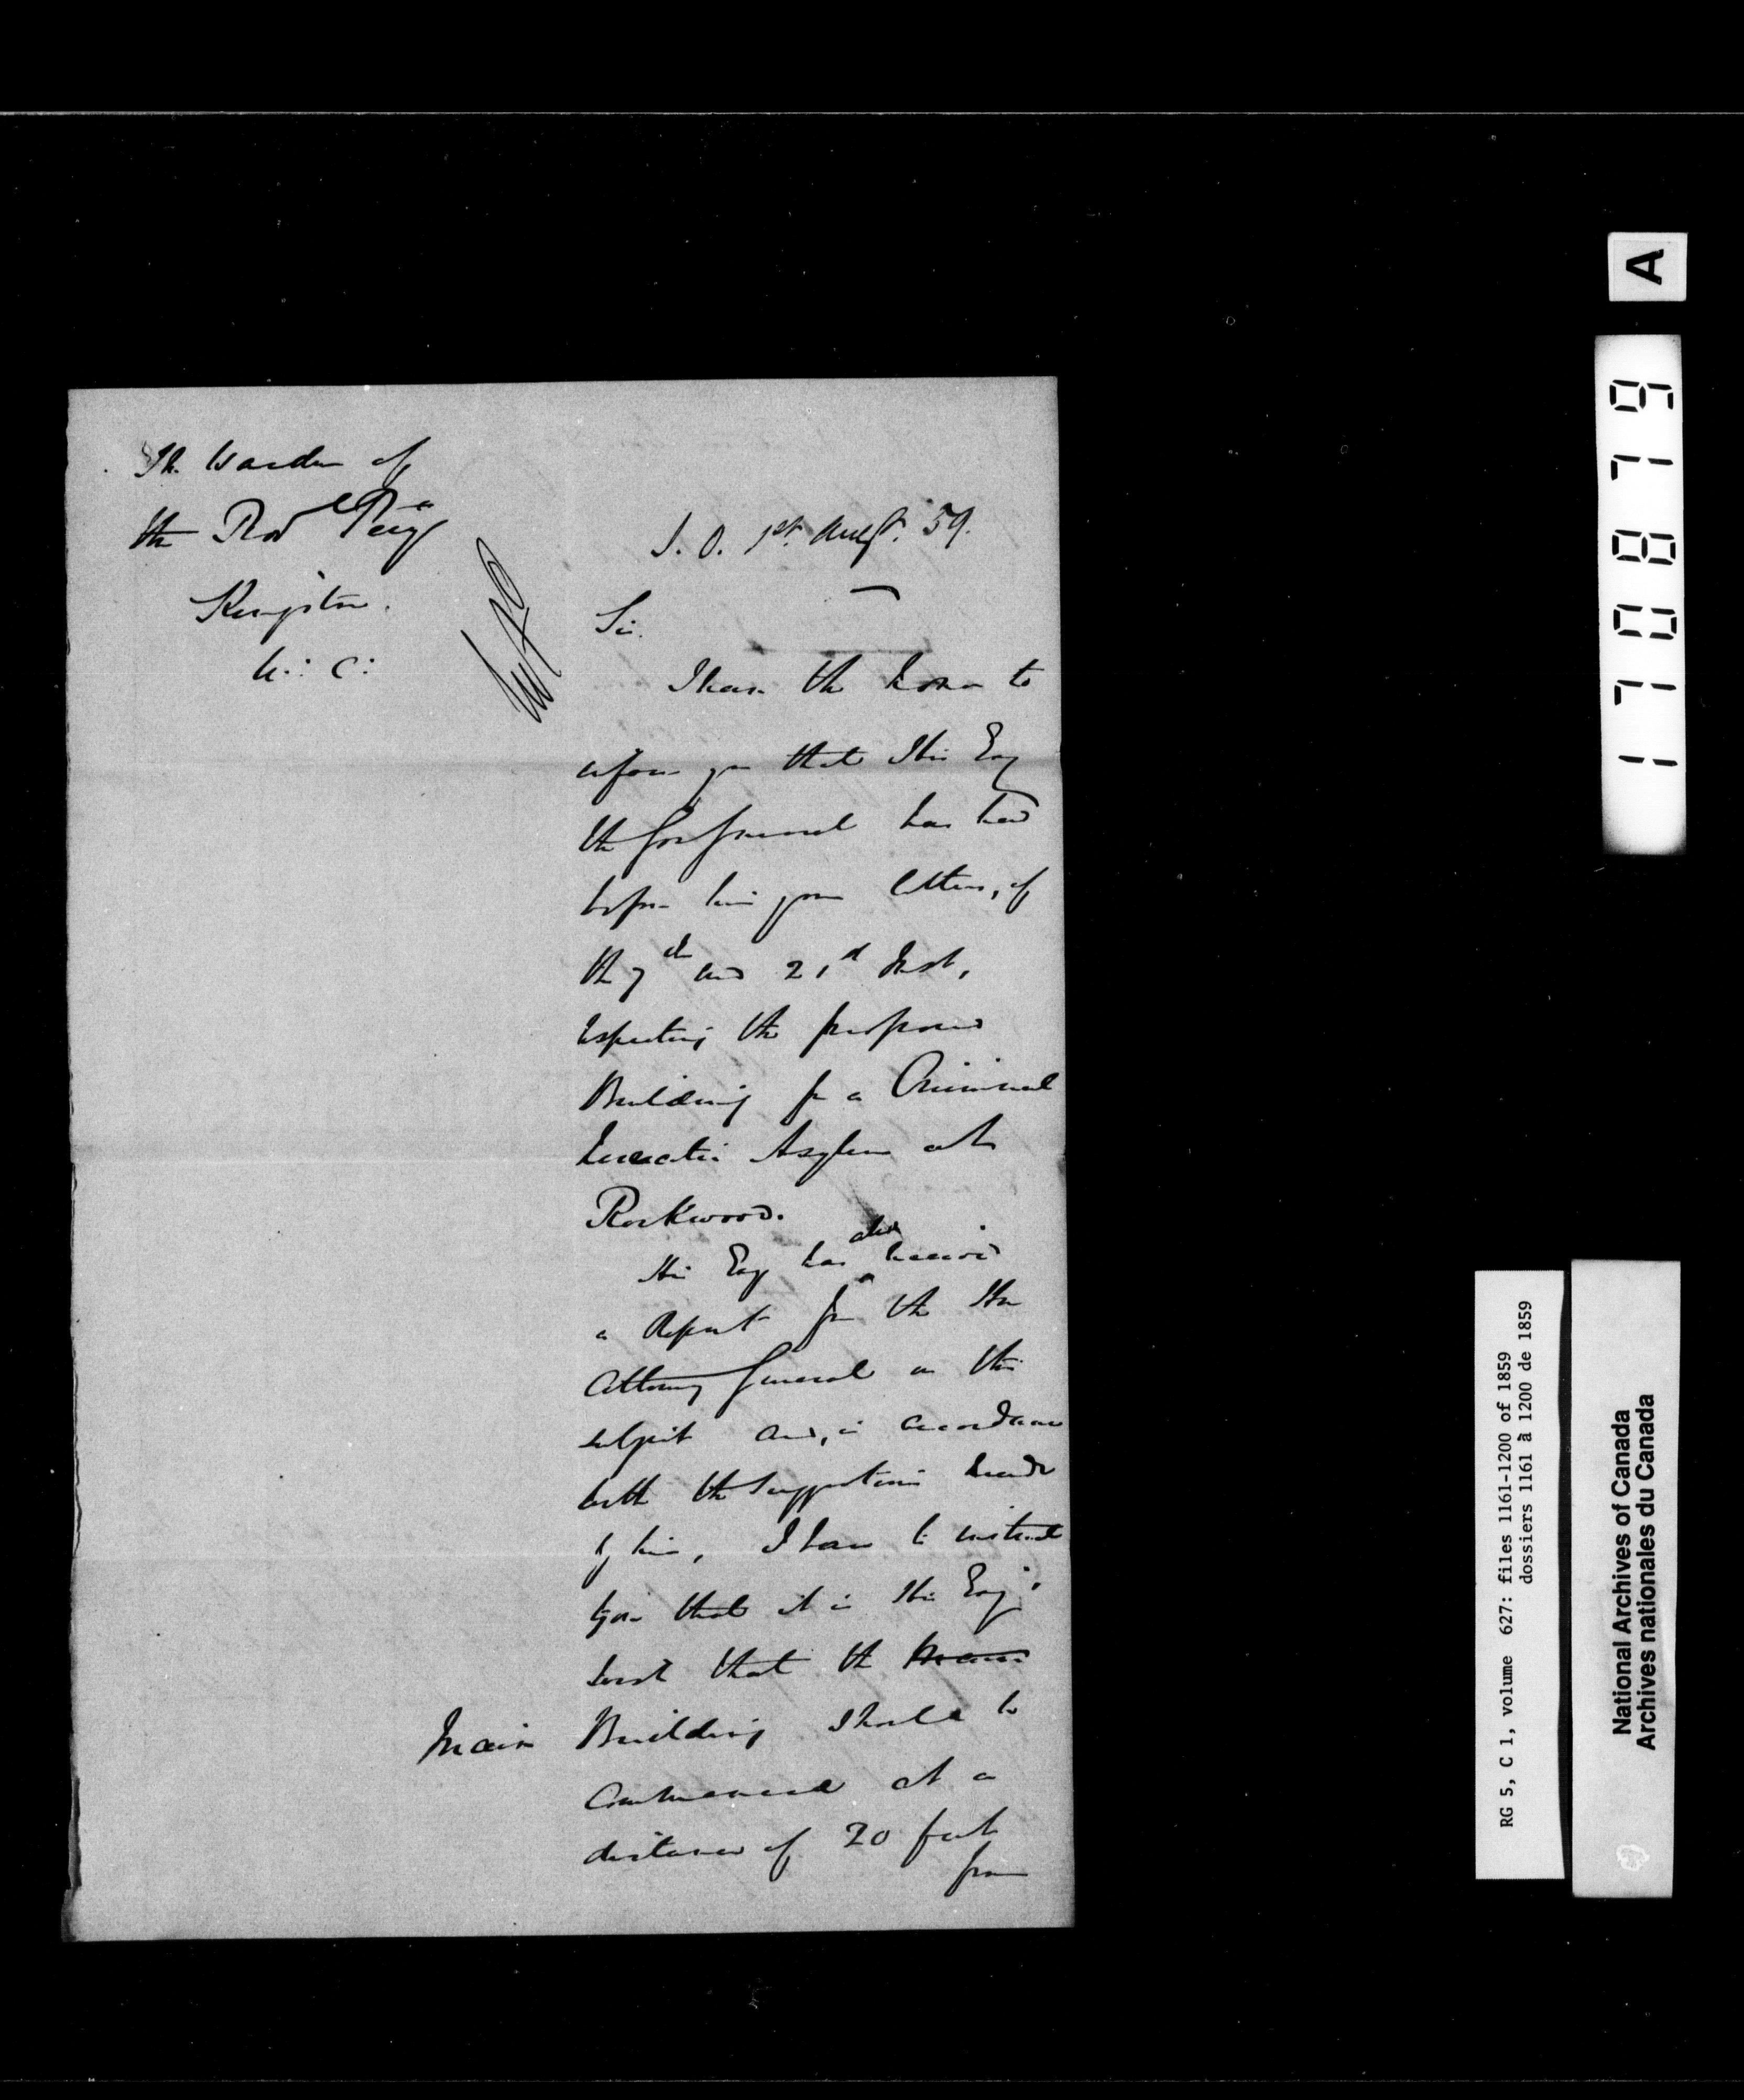 The Warden of
the Prov Pen^y
Kingston.
U: C:
S. O. 1st Augst. 59.
Sir.
I have the honor to
inform you that His Exy
the Gov General has had
before him your letters, of
the 7th and 21st Inst,
respecting the proposed
Building for a Criminal
Lunatic Asylum at
Rockwood.
His Exy has also received
a Report from the Hon
Attorney General on this
subject and, in accordance
with the suggestions made
by him, I have to instruct
you that it is His Exy's
that the Main
Main Building should be
Commenced at a
distance of 20 feet
from
A
1708719
RG 5, C 1, volume 627: files 1161-1200 of 1859
dossiers 1161 à 1200 de 1859
National Archives of Canada
Archives nationales du Canada